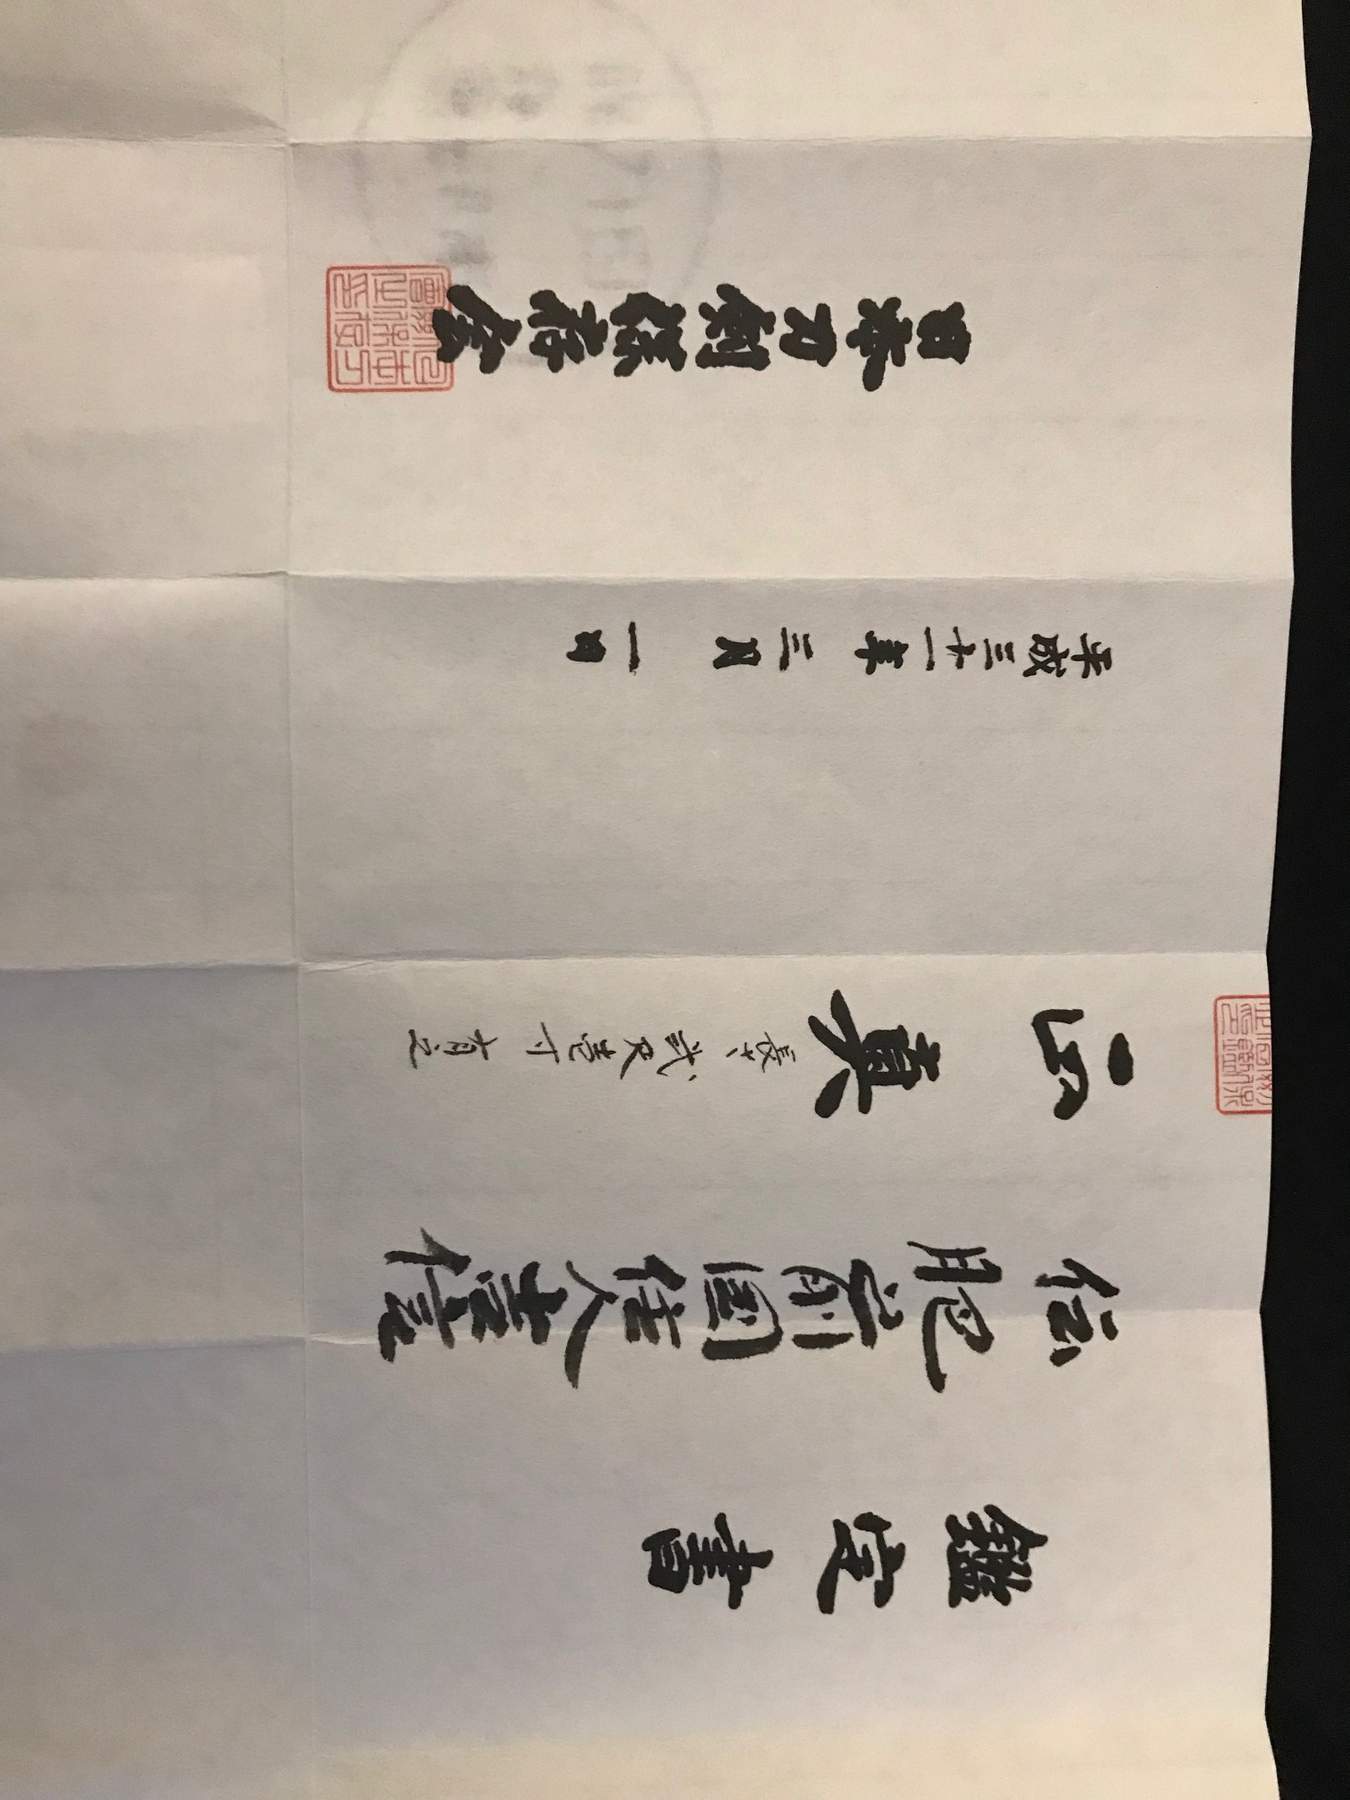 鑑定書
伝肥前國住人吉信
正真 長サ 弐尺壱寸 有之
平成三十一年三月一日
日本刀剣保存会